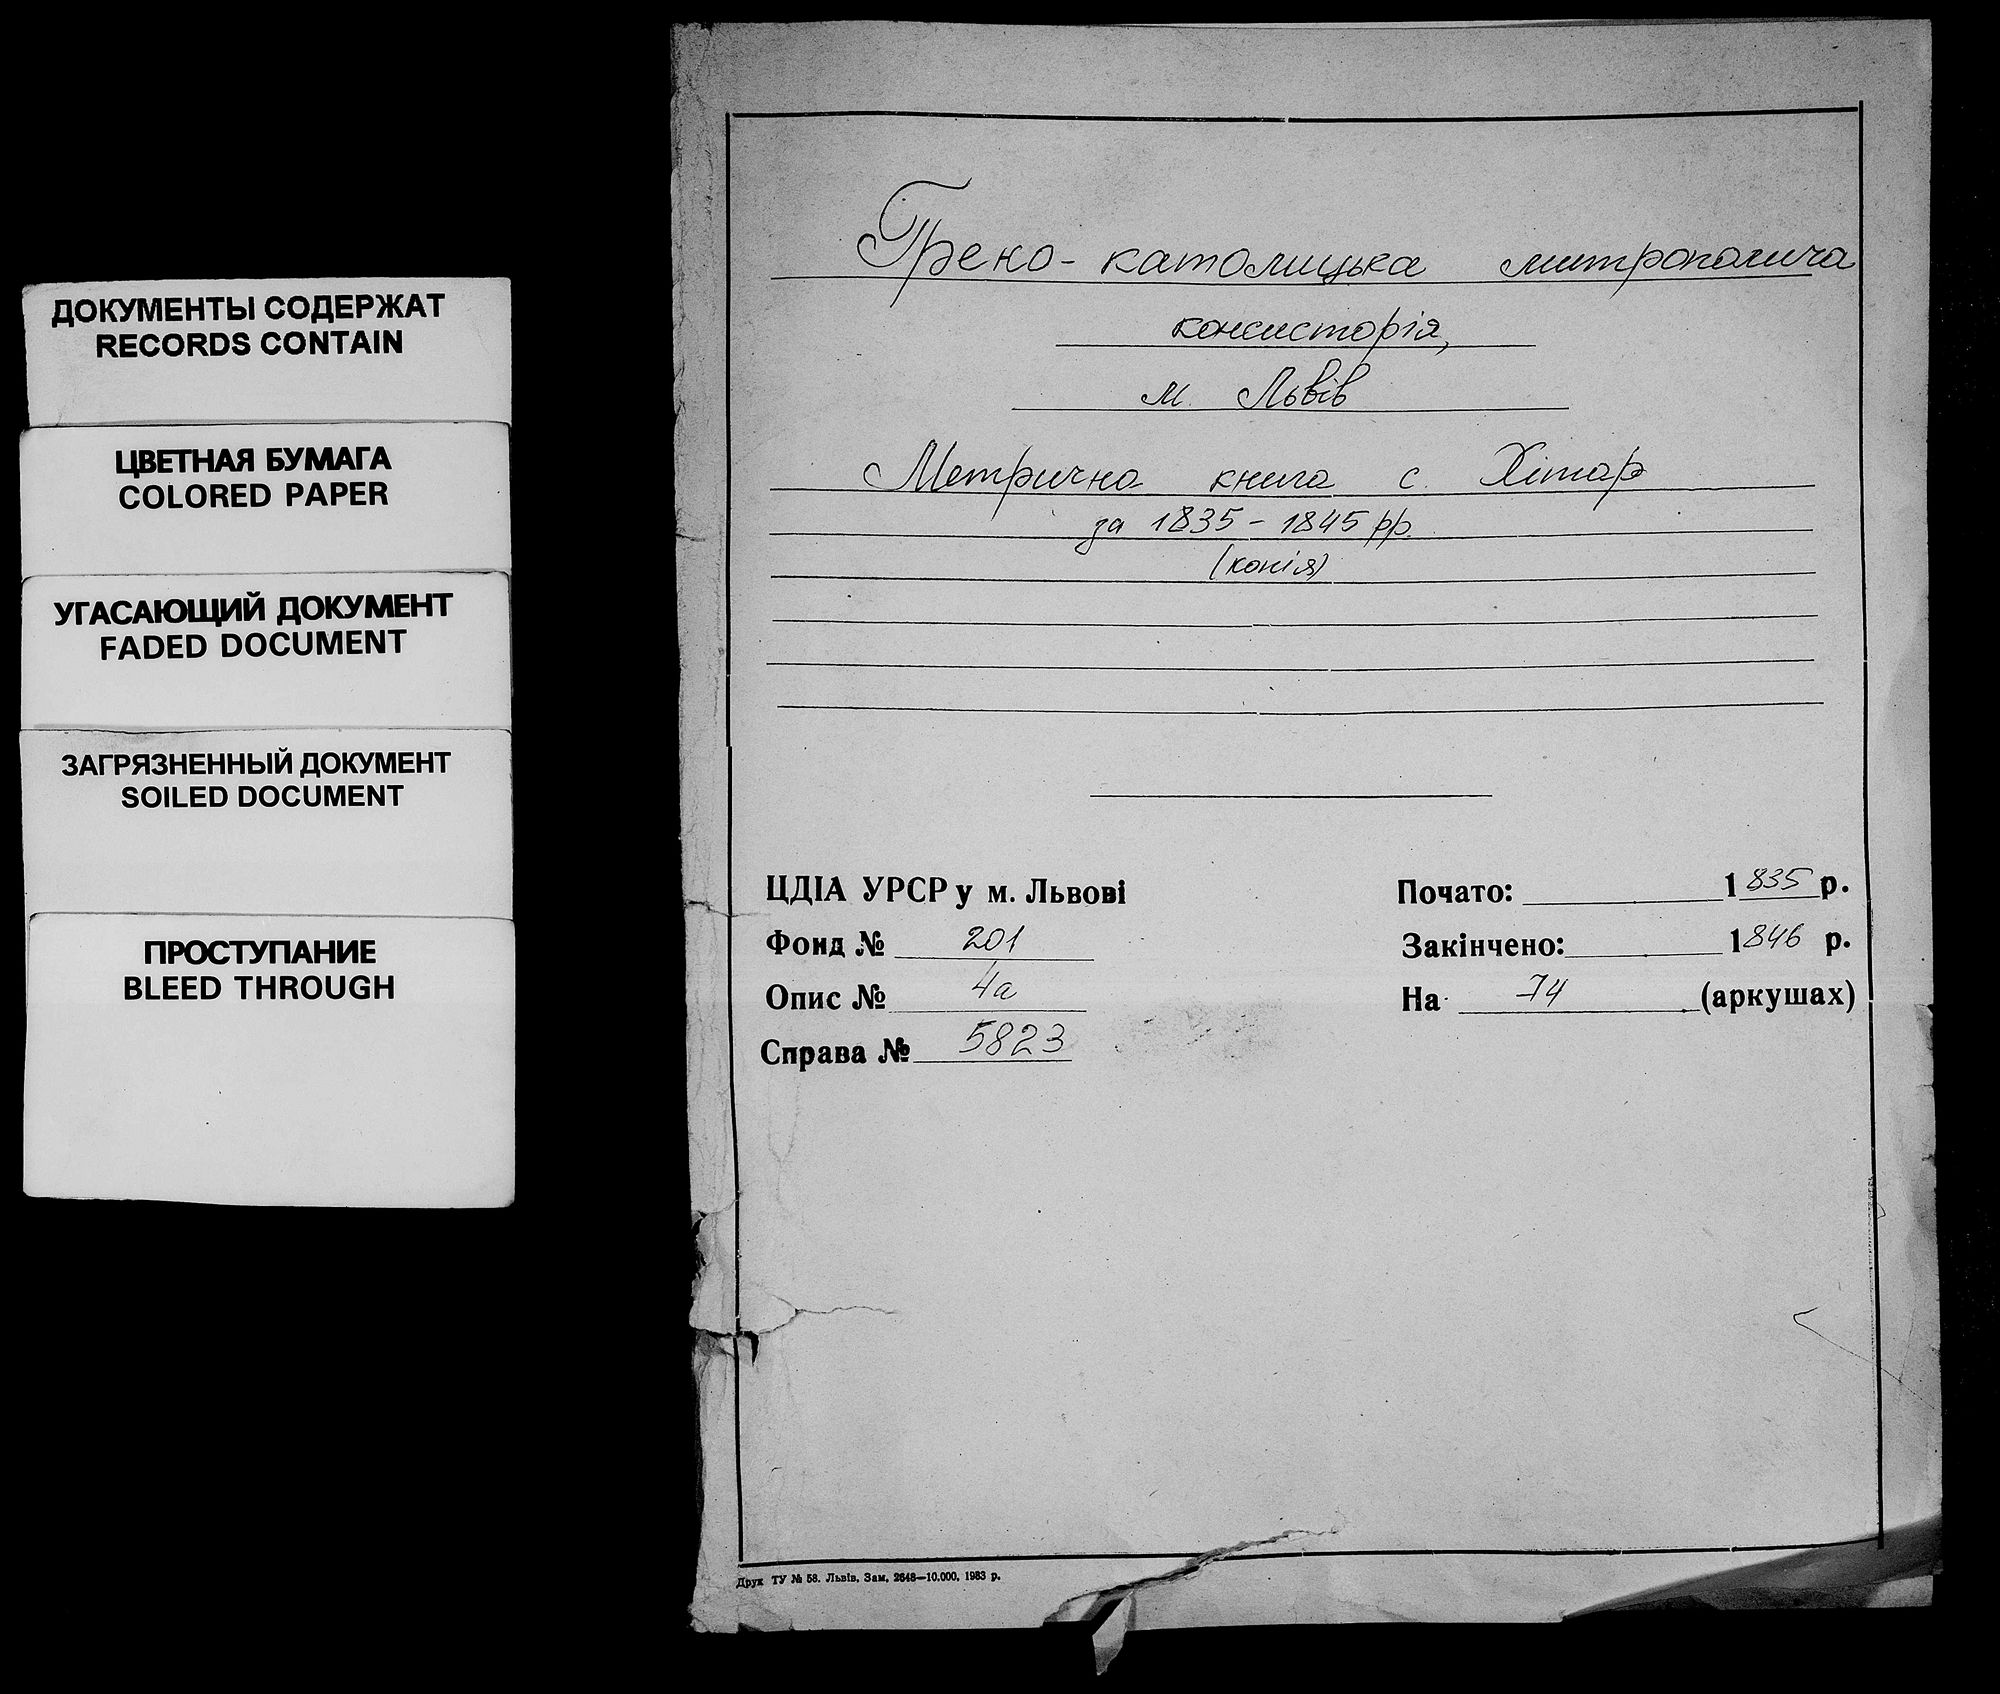 ДОКУМЕНТЫ СОДЕРЖАТ
RECORDS CONTAIN
ЦВЕТНАЯ БУМАГА
COLORED PAPER
УГАСАЮЩИЙ ДОКУМЕНТ
FADED DOCUMENT
ЗАГРЯЗНЕННЫЙ ДОКУМЕНТ
SOILED DOCUMENT
ПРОСТУПАНИЕ
BLEED THROUGH
Греко-католицька митрополича
консисторія,
м. Львів
Метрична книга с. Хітар
за 1835-1845 рр.
(копія)
ЦДІА УРСР у м. Львові
Фонд № 201
Опис № 4а
Справа № 5823
Почато: 1835 р.
Закінчено: 1846 р.
На 74 (аркушах)
Друк ТУ № 58. Львів. Зам. 2648—10.000. 1983 р.